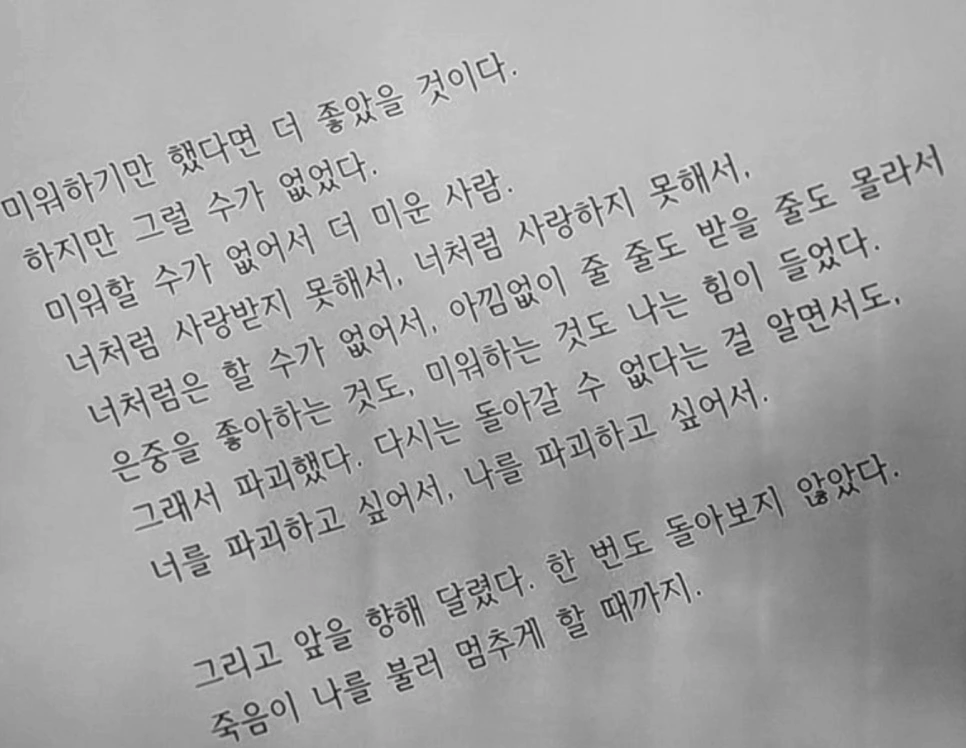 미워하기만 했다면 더 좋았을 것이다.
하지만 그럴 수가 없었다.
미워할 수가 없어서 더 미운 사람.
너처럼 사랑받지 못해서, 너처럼 사랑하지 못해서,
너처럼은 할 수가 없어서, 아낌없이 줄 줄도 받을 줄도 몰라서
은중을 좋아하는 것도, 미워하는 것도 나는 힘이 들었다.
그래서 파괴했다. 다시는 돌아갈 수 없다는 걸 알면서도,
너를 파괴하고 싶어서, 나를 파괴하고 싶어서.
그리고 앞을 향해 달렸다. 한 번도 돌아보지 않았다.
죽음이 나를 불러 멈추게 할 때까지.